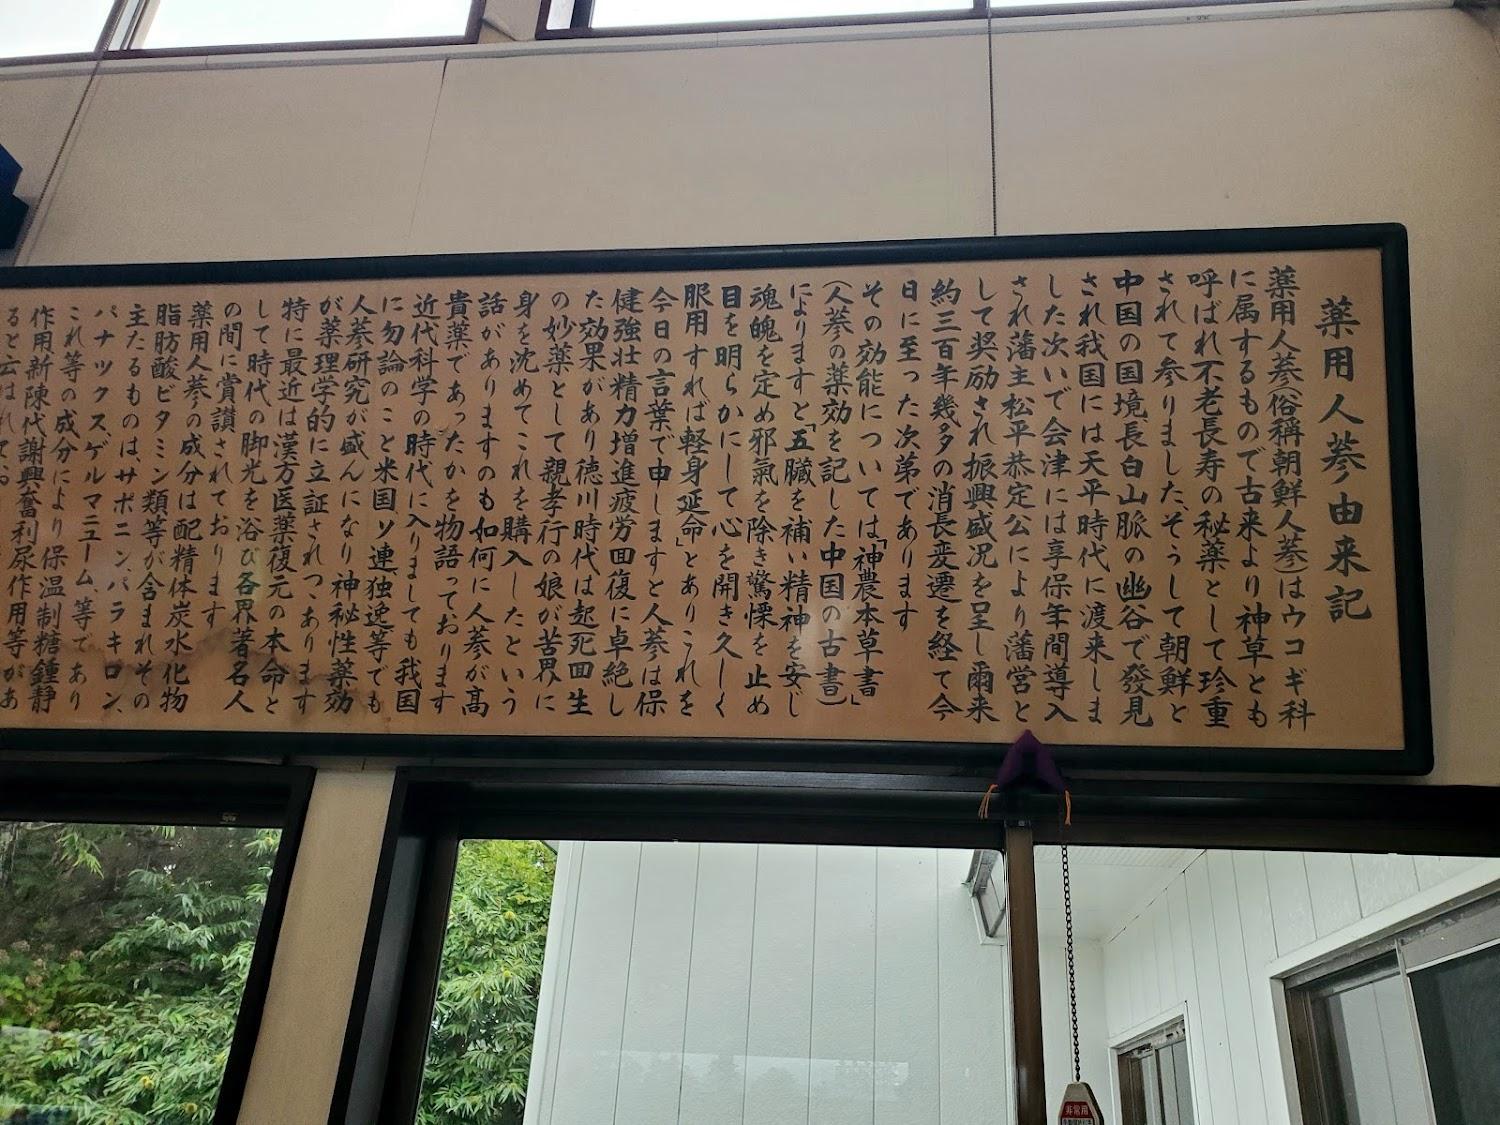 薬用人蔘由来記
薬用人蔘(俗稱朝鮮人蔘)はウコギ科
に属するもので古来より神草とも
呼ばれ不老長寿の秘薬として珍重
されて参りました、そうして朝鮮と
中国の国境長白山脈の幽谷で發見
され我国には天平時代に渡来しま
した次いで会津には享保年間導入
され藩主松平恭定公により藩営と
して奨励され振興盛況を呈し爾来
約三百年幾多の消長変遷を経て今
日に至った次第であります
その効能については「神農本草書」
(人蔘の薬効を記した中国の古書)
によりますと「五臓を補い精神を安じ
魂魄を定め邪氣を除き驚慄を止め
目を明らかにして心を開き久しく
服用すれば軽身延命」とありこれを
今日の言葉で申しますと人蔘は保
健強壮精力増進疲労回復に卓絶し
た効果があり徳川時代は起死回生
の妙薬として親孝行の娘が苦界に
身を沈めてこれを購入したという
話がありますのも如何に人蔘が高
貴薬であったかを物語っております
近代科学の時代に入りましても我国
に勿論のこと米国ソ連独逸等でも
人蔘研究が盛んになり神秘性薬効
が薬理学的に立証されつゝあります
特に最近は漢方医薬復元の本命と
して時代の脚光を浴び各界著名人
の間に賞讃されております
薬用人蔘の成分は配精体炭水化物
脂肪酸ビタミン類等が含まれその
主たるものはサポニン、パラキロン、
パナックスゲルマニューム、等であり
これ等の成分により保温制糖鍾静
作用新陳代謝興奮利尿作用等があ
ると云はれ
非常用